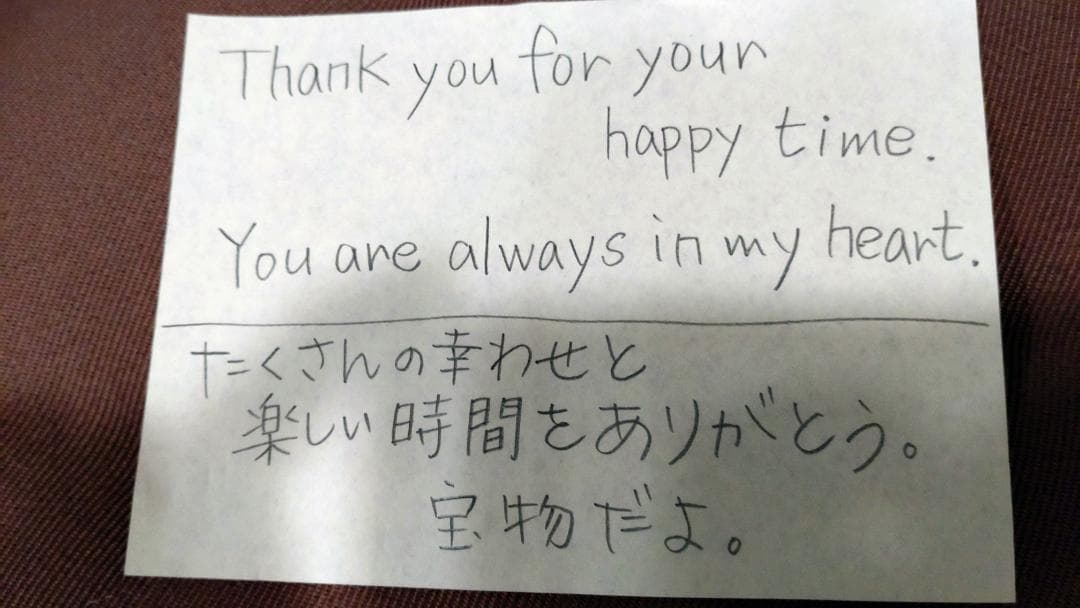 Thank you for your
happy time.
You are always in my heart.
たくさんの幸わせと
楽しい時間をありがとう。
宝物だよ。